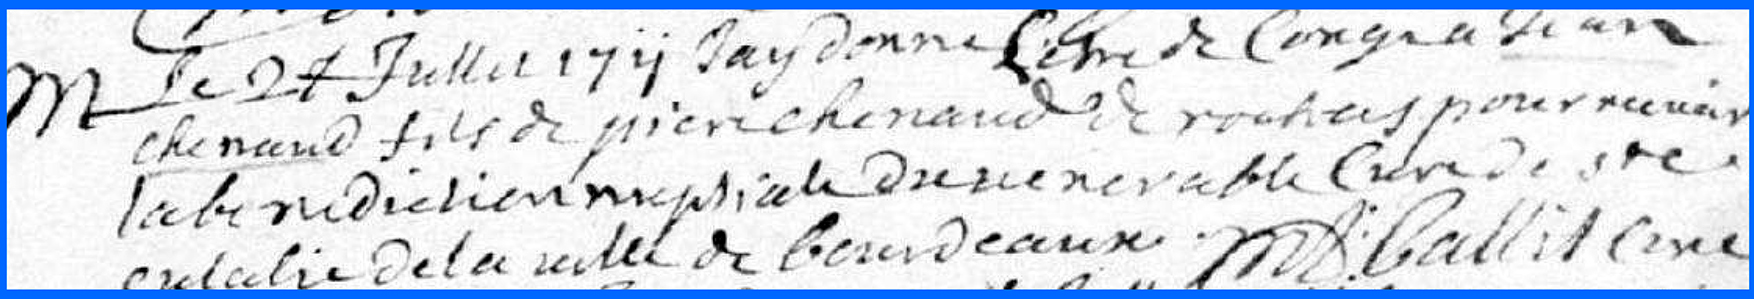 M Le 27 Jullet 1711 Jay donne lettre de Conge a Jean
chenaud fils de piere chenaud de pour recevoir
la benediction nuptiale du venerable Cure de Ste
eulalie de la ville de bourdeaux Ballet Cure